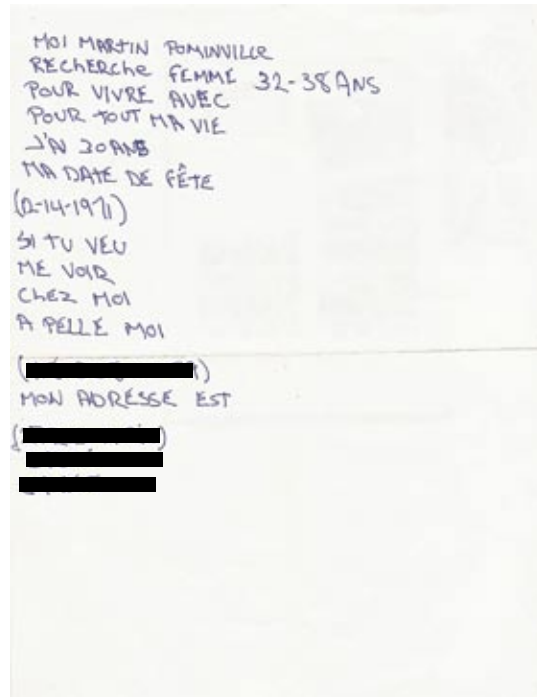 MOI MARTIN POMINVILLE
RECHERCHE FEMME 32-38 ANS
POUR VIVRE AVEC
POUR TOUT MA VIE
J'AI 30 ANS
MA DATE DE FÊTE
(12-14-1971)
SI TU VEU
ME VOIR
CHEZ MOI
A PELLE MOI
MON ADRESSE EST